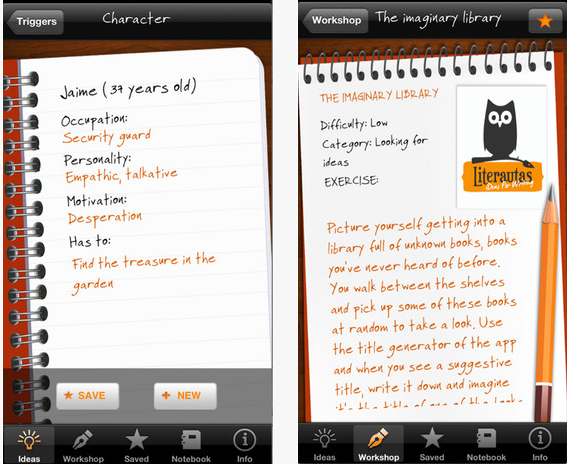 Triggers
Character
Jaime (37 years old)
Occupation:
Security guard
Personality:
Empathic, talkative
Motivation:
Desperation
Has to:
Find the treasure in the
garden
SAVE
NEW
Ideas
Workshop
Saved
Notebook
Info
Workshop
The imaginary library
THE IMAGINARY LIBRARY
Difficulty: Low
Category: Looking for
ideas
EXERCISE:
Literautas
Ideas For Writing
Picture yourself getting into a
library full of unknown books, books
you've never heard of before.
You walk between the shelves
and pick up some of these books
at random to take a look. Use
the title generator of the app
and when you see a suggestive
title, write it down and imagine
it's the title of one of the books
Ideas
Workshop
Saved
Notebook
Info